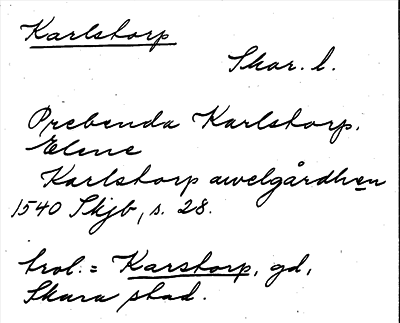 Karlstorp
Skar. l.
Prebenda Karlstorp.
Elene
Karlstorp awelgårdhen
1540 Skjb, s. 28.
trol. = Karstorp, gd,
Skara stad.